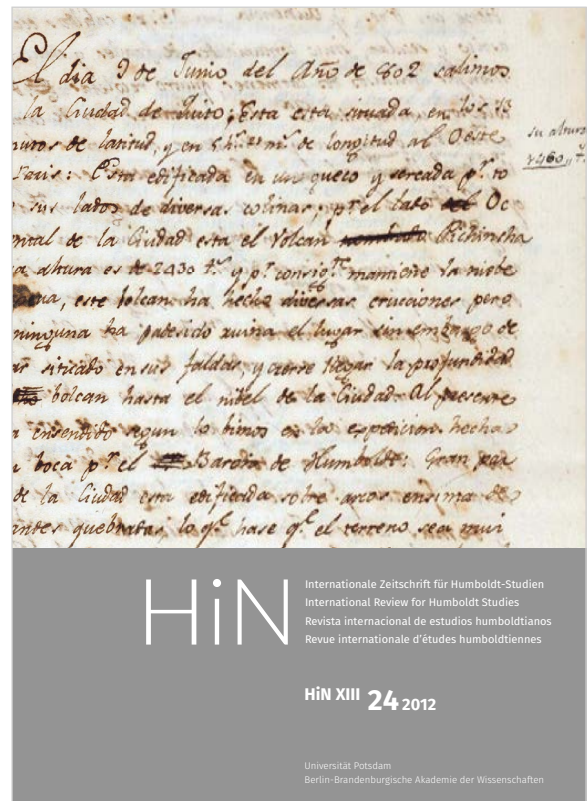 El dia 9 de Junio del Año de 802 salimos
la Ciudad de Quito; Esta esta situada, en los 13
nutos de latitud, y en 5 hs. 21 ms. de longitud al Oeste
su altura
1460,, t.
Paris: Esta edificada en un gueco y sercada pr. to
sus lados de diversas colinas; pr. el lado del Oc
ental de la Ciudad esta el Volcan Pichincha
a altura es de 2430 ts. y pr. consigte. mantiene la niebe
este bolcan ha hecho diversas erucciones pero
ninguna ha padesido ruina el lugar sin embargo de
ar sitiado en sus faldas, y aerse llegar la profundidad
bolcan hasta el nibel de la Ciudad. Al presente
ensentido segun lo bimos en la espedicion hecha
boca pr. el Baron de Humboldt. Gran par
de la Ciudad esta edificada sobre arcos ensima de
antes quebratas, lo qe. hase qe. el terreno sea mui
HiN
Internationale Zeitschrift für Humboldt-Studien
International Review for Humboldt Studies
Revista internacional de estudios humboldtianos
Revue internationale d'études humboldtiennes
HiN XIII 24 2012
Universität Potsdam
Berlin-Brandenburgische Akademie der Wissenschaften